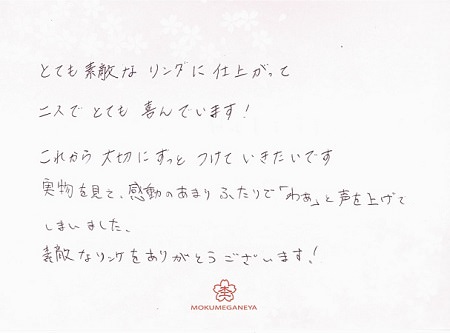 とても素敵なリングに仕上がって
ニスで とても 喜んでいます!
これから 大切に ずっと つけて いきたいです
実物を見て、感動のあまり ふたりで「わぁ」と声を上げて
しまいました。
素敵なリングをありがとうございます!
MOKUMEGANEYA